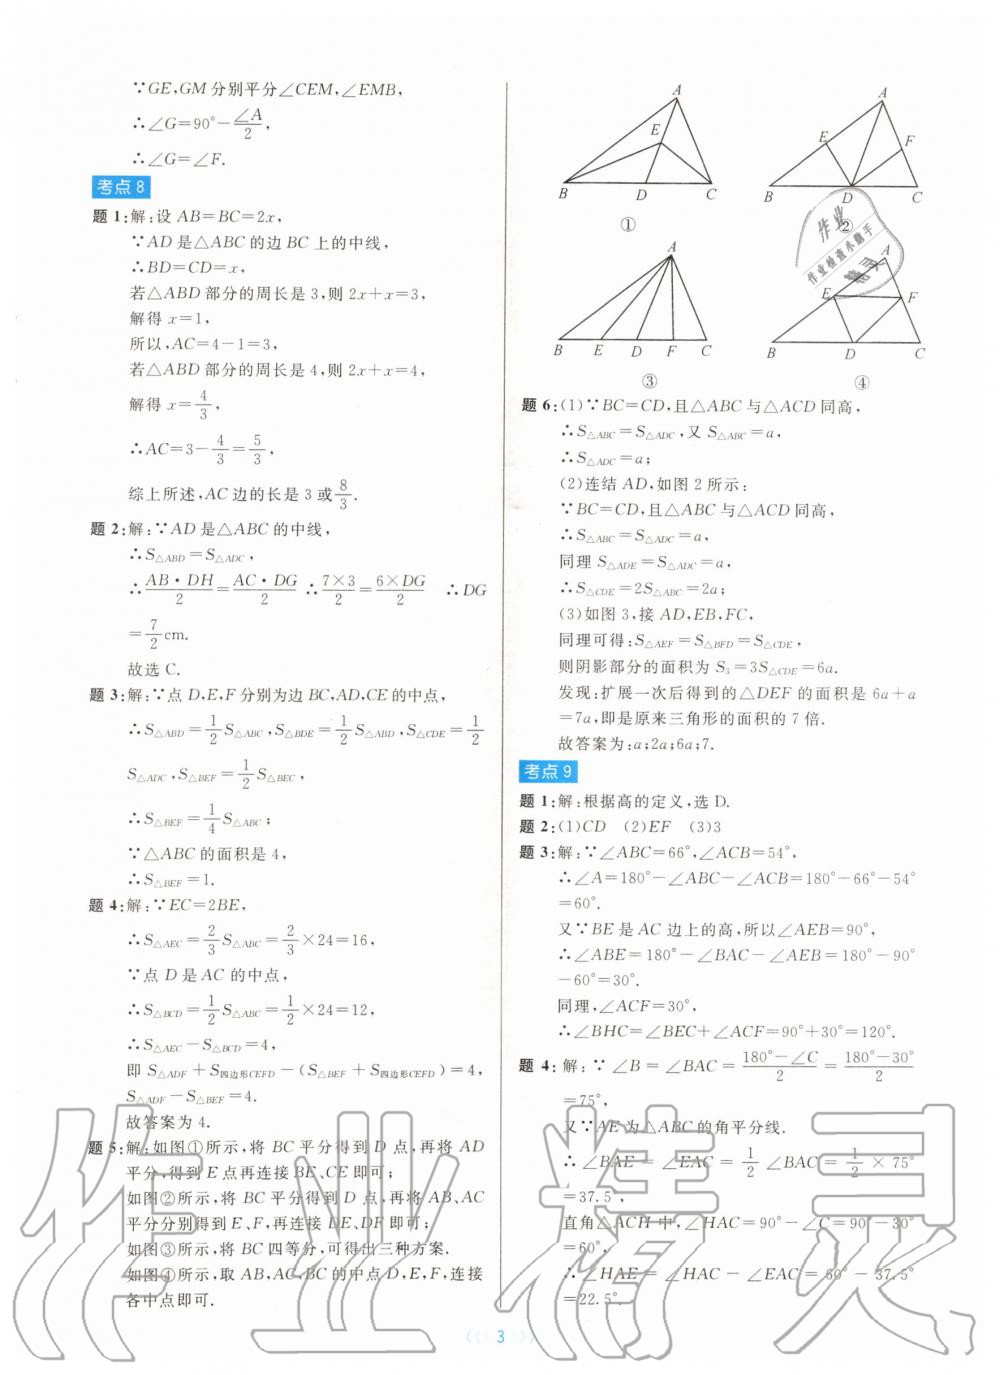 ∵GE,GM分别平分∠CEM,∠EMB,
∴∠G=90°-∠A/2,
∴∠G=∠F.
考点8
题1:解:设AB=BC=2x,
∵AD是△ABC的边BC上的中线,
∴BD=CD=x,
若△ABD部分的周长是3,则2x+x=3,
解得x=1,
所以,AC=4-1=3,
若△ABD部分的周长是4,则2x+x=4,
解得x=4/3,
∴AC=3-4/3=5/3,
综上所述,AC边的长是3或8/3.
题2:解:∵AD是△ABC的中线,
∴S△ABD=S△ADC,
∴AB·DH/2=AC·DG/2 ∴7×3/2=6×DG/2 ∴DG
=7/2cm.
故选C.
题3:解:∵点D,E,F分别为边BC,AD,CE的中点,
∴S△ABD=1/2S△ABC,S△BDE=1/2S△ABD,S△CDE=1/2
S△ADC,S△BEF=1/2S△BEC,
∴S△BEF=1/4S△ABC;
∵△ABC的面积是4,
∴S△BEF=1.
题4:解:∵EC=2BE,
∴S△AEC=2/3S△ABC=2/3×24=16,
∵点D是AC的中点,
∴S△BCD=1/2S△ABC=1/2×24=12,
∴S△AEC-S△BCD=4,
即S△ADF+S四边形CEFD-(S△BEF+S四边形CEFD)=4,
S△ADF-S△BEF=4.
故答案为4.
题5:解:如图①所示,将BC平分得到D点,再将AD
平分,得到E点再连接BE、CE即可;
如图②所示,将BC平分得到D点,再将AB、AC
平分分别得到E、F,再连接DE、DF即可;
如图③所示,将BC四等分,可得出三种方案.
如图④所示,取AB,AC,BC的中点D,E,F,连接
各中点即可.
A
E
B D C
①
A
E F
B D C
②
A
B E D F C
③
A
E F
B D C
④
题6:(1)∵BC=CD,且△ABC与△ACD同高,
∴S△ABC=S△ADC,又S△ABC=a,
∴S△ADC=a;
(2)连结AD,如图2所示:
∵BC=CD,且△ABC与△ACD同高,
∴S△ABC=S△ADC=a,
同理S△ADE=S△ADC=a,
∴S△CDE=2S△ABC=2a;
(3)如图3,接AD,EB,FC,
同理可得:S△AEF=S△BFD=S△CDE,
则阴影部分的面积为S₃=3S△CDE=6a.
发现:扩展一次后得到的△DEF的面积是6a+a
=7a,即是原来三角形的面积的7倍.
故答案为:a;2a;6a;7.
考点9
题1:解:根据高的定义,选D.
题2:(1)CD (2)EF (3)3
题3:解:∵∠ABC=66°,∠ACB=54°,
∴∠A=180°-∠ABC-∠ACB=180°-66°-54°
=60°.
又∵BE是AC边上的高,所以∠AEB=90°,
∴∠ABE=180°-∠BAC-∠AEB=180°-90°
-60°=30°.
同理,∠ACF=30°,
∴∠BHC=∠BEC+∠ACF=90°+30°=120°.
题4:解:∵∠B=∠BAC=180°-∠C/2=180°-30°/2
=75°,
又∵AE为△ABC的角平分线.
∴∠BAE=∠EAC=1/2∠BAC=1/2×75°
=37.5°,
直角△ACH中,∠HAC=90°-∠C=90°-30°
=60°,
∴∠HAE=∠HAC-∠EAC=60°-37.5°
=22.5°.
3
作业精灵
作业
作业检查小助手
精灵